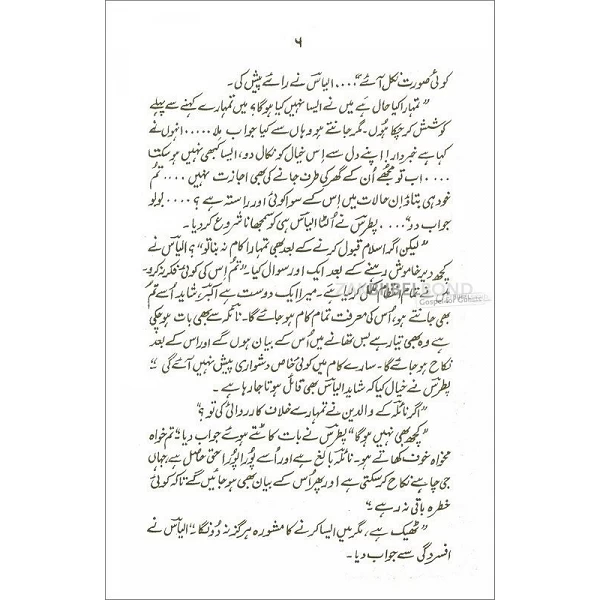 ۶
کوئی صورت نکل آئے“.... الیاس نے رائے پیش کی۔
”تمہارا کیا حال ہے میں نے ایسا نہیں کیا ہوگا؟ میں تمہارے کہنے سے پہلے
کوشش کر چکا ہوں۔ مگر جانتے ہو وہاں سے کیا جواب ملا..... انہوں نے
کہا ہے خبردار! اپنے دل سے اِس خیال کو نکال دو، ایسا کبھی نہیں ہو سکتا
.... اب تو مجھے اُن کے گھر کی طرف جانے کی بھی اجازت نہیں .... تم
خود ہی بتاؤ اِن حالات میں اِس کے سوا کوئی اور راستہ ہے ؟.... بولو
جواب دو“.... پطرس نے اُلٹا الیاس ہی کو سمجھانا شروع کر دیا۔
”لیکن اگر اسلام قبول کرنے کے بعد بھی تمہارا کام نہ بنا تو“؟ الیاس نے
کچھ دیر خاموش رہنے کے بعد ایک اور سوال کیا۔ ”تم اِس کی کوئی فکر نہ کرو۔
ZAKHIBELBOND
Gospel of Goods
کر لیا ہے۔ میرا ایک دوست ہے اکبر، شاید اُسے تم
بھی جانتے ہو، اُس کی معرفت تمام کام ہو جائے گا۔ نائلہ سے بھی بات ہو چکی
ہے وہ بھی تیار ہے بس تھانے میں اُس کے بیان ہوں گے اور اِس کے بعد
نکاح ہو جائے گا۔ سارے کام میں کوئی خاص دشواری پیش نہیں آئے گی“
پطرس نے خیال کیا کہ شاید الیاس بھی قائل ہوتا جا رہا ہے۔
”اگر نائلہ کے والدین نے تمہارے خلاف کارروائی کی تو؟“
”کچھ بھی نہیں ہوگا“ پطرس نے بات کاٹتے ہوئے جواب دیا۔ ”تم خواہ
مخواہ خوف کھاتے ہو۔ نائلہ بالغ ہے اور اُسے پورا پورا حق حاصل ہے جہاں
جی چاہے نکاح کر سکتی ہے اور پھر اُس کے بیان بھی ہو جائیں گے تاکہ کوئی
خطرہ باقی نہ رہے۔“
”ٹھیک ہے، مگر میں ایسا کرنے کا مشورہ ہرگز نہ دُونگا“ الیاس نے
افسردگی سے جواب دیا۔